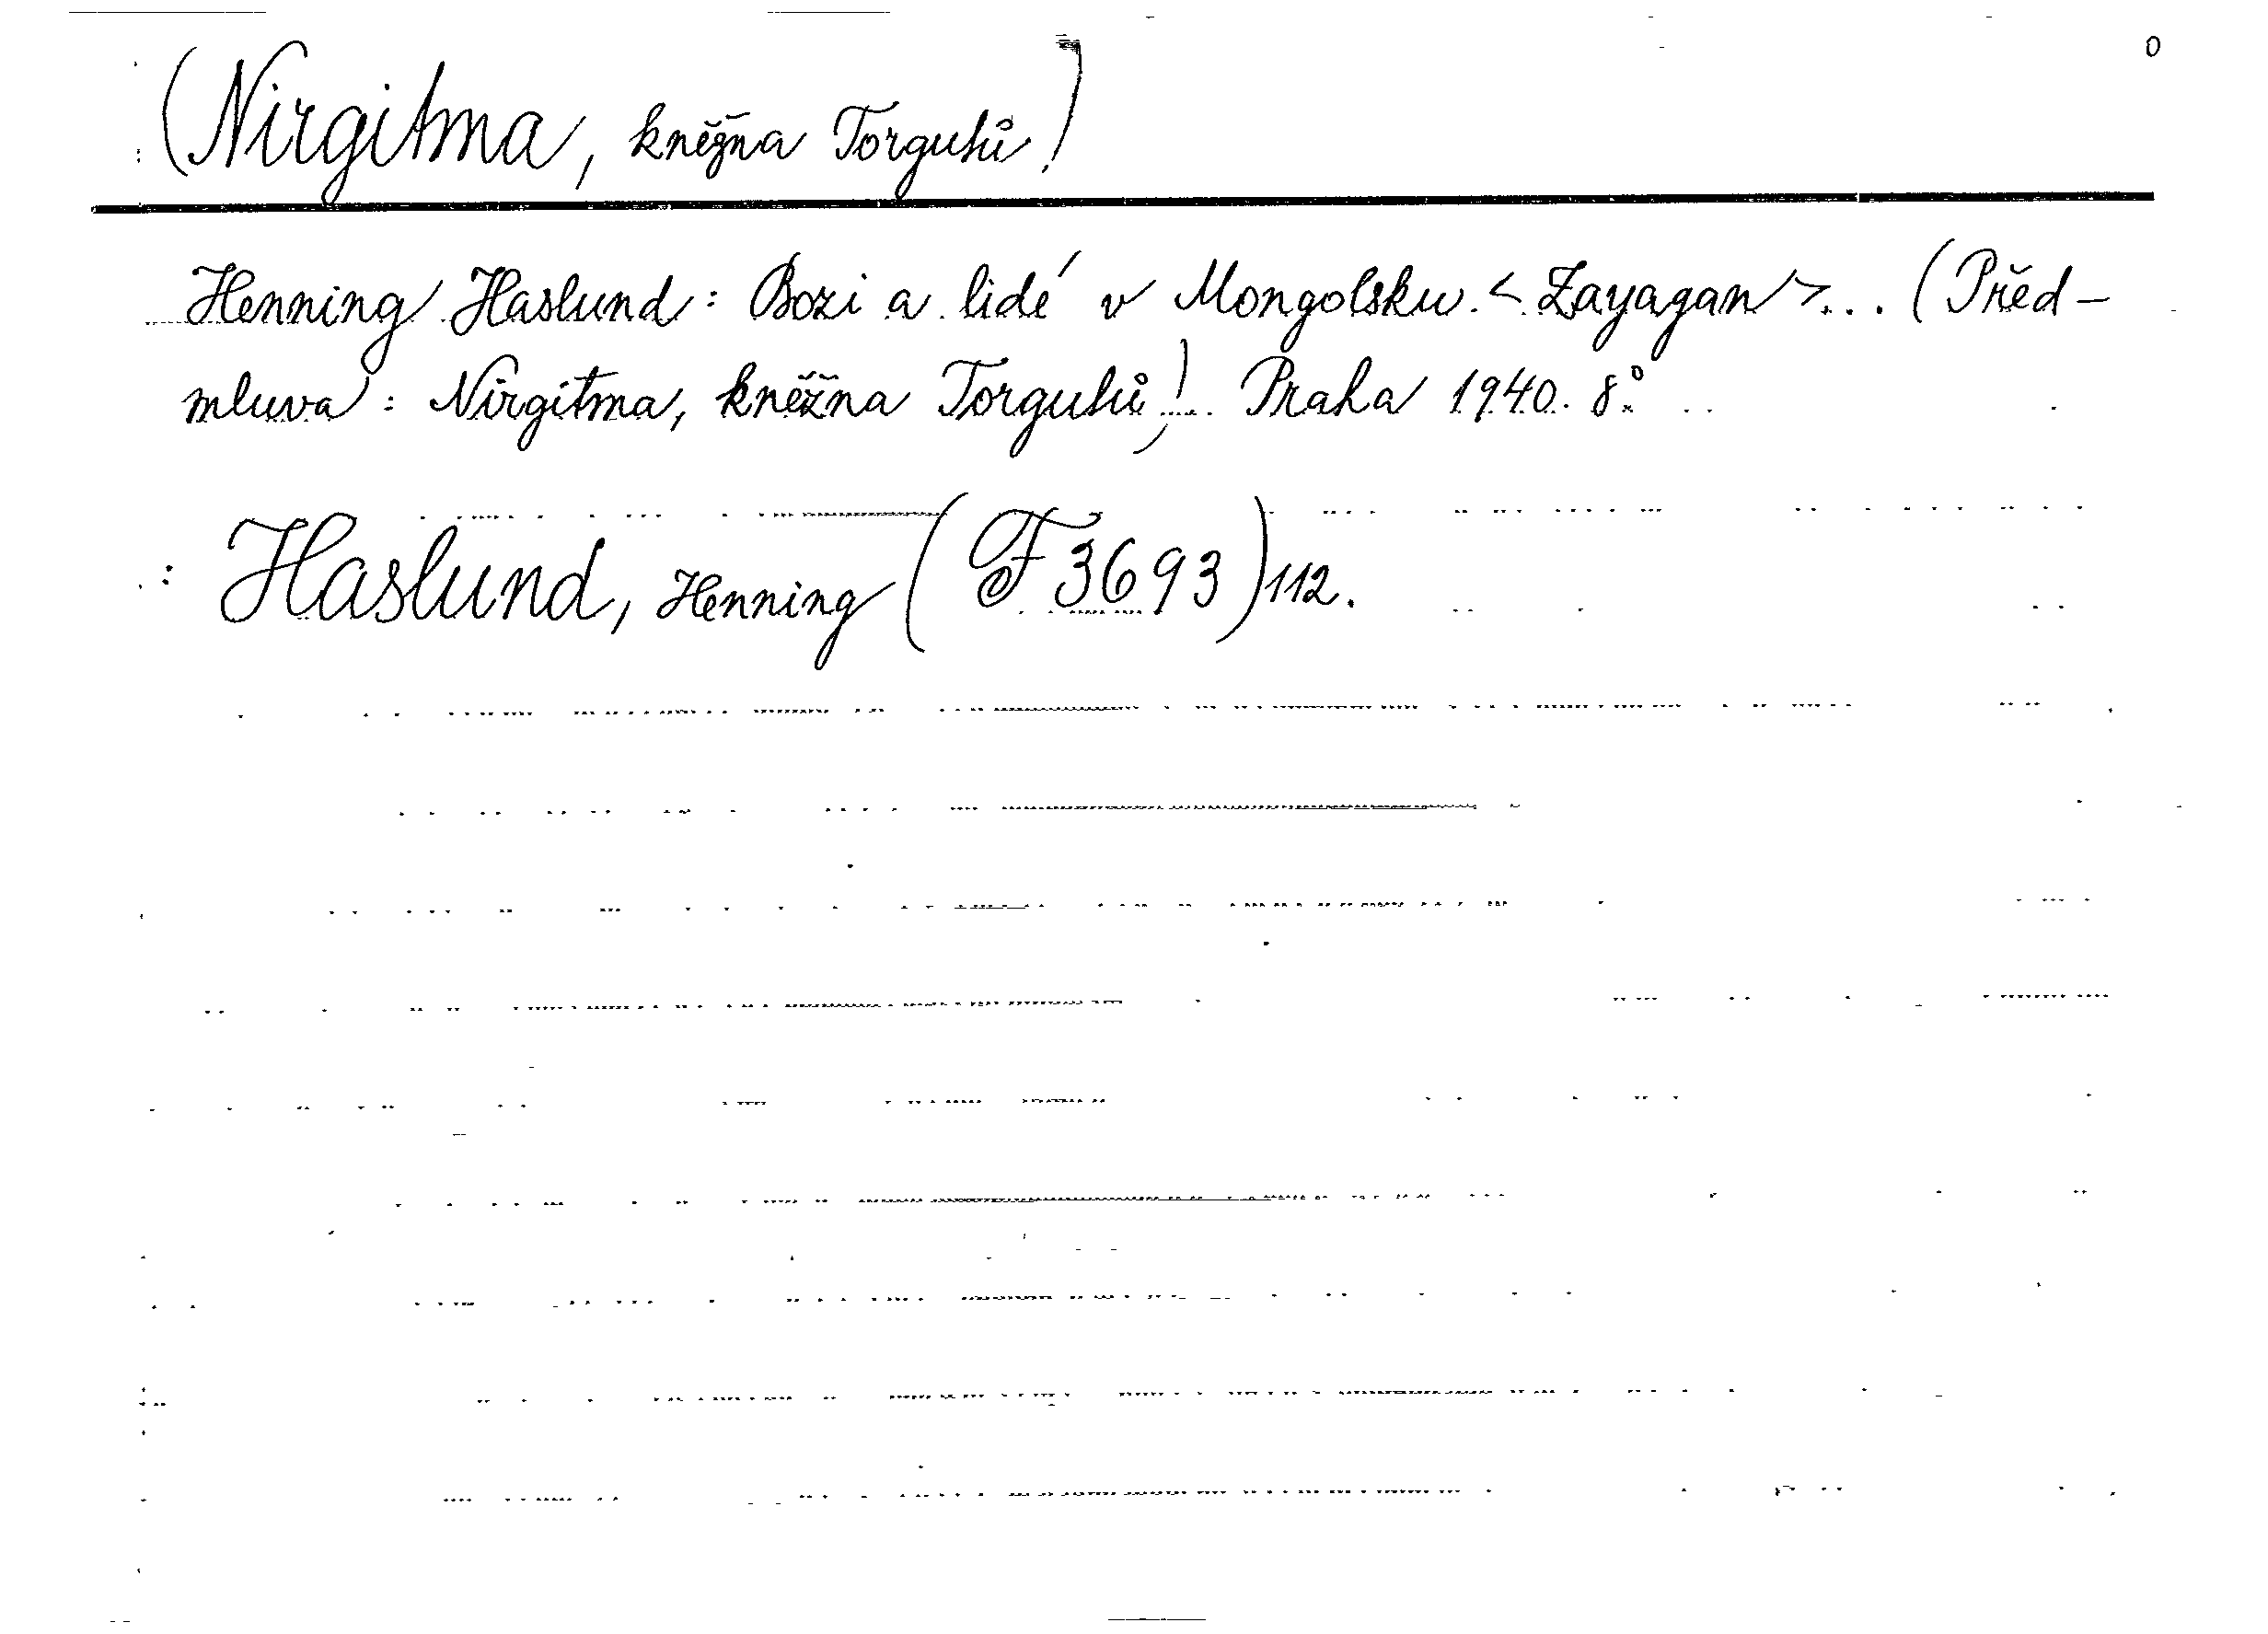 0
(Nirgitma, kněžna Torgutů)
Henning Haslund: Bozi a lidé v Mongolsku. <Zayagan>... (Před-
mluva: Nirgitma, kněžna Torgutů). Praha 1940. 8°.
: Haslund, Henning (F 3693) 112.